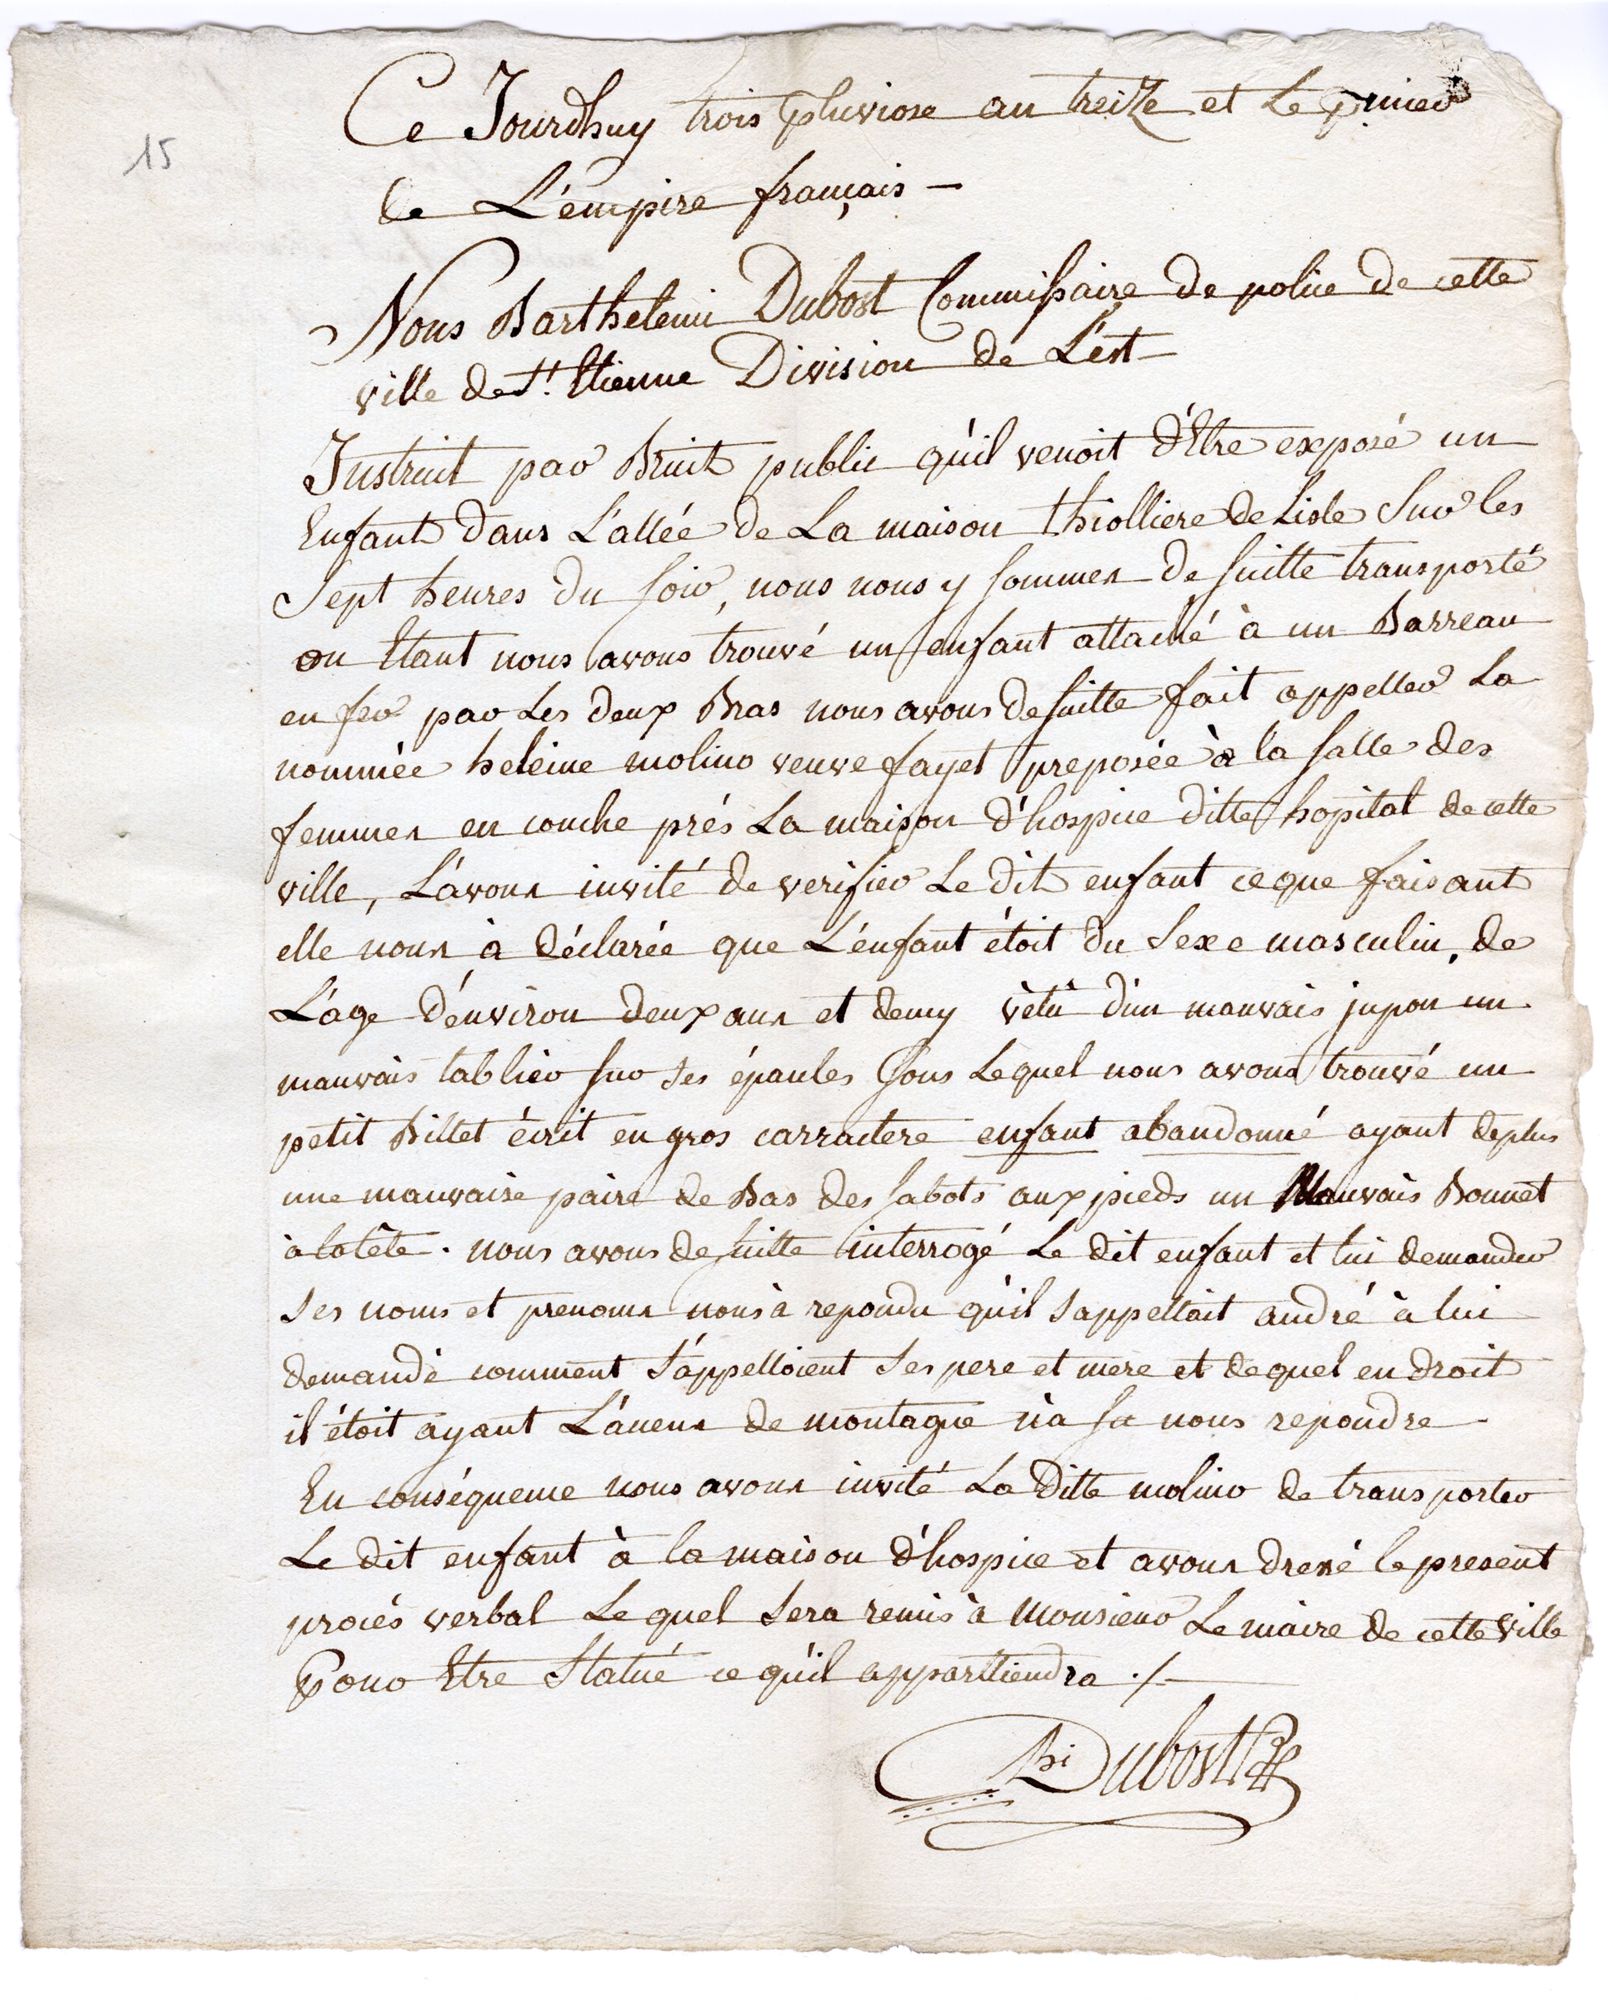 15
Ce Jourdhuy trois pluviose an treize et Le p.mier
de L'empire français —
Nous Barthelemi Dubost Commissaire de police de cette
ville de St. Etienne Division de L'est —
Instruit par Bruit public qu'il venoit d'Etre exposé un
Enfant dans L'allée de La maison thiolliere de Lisle Sur les
Sept heures du soir, nous nous y sommes de suitte transporté
ou Etant nous avons trouvé un enfant attaché à un Barreau
en fer par Les deux Bras nous avons de suitte fait appeller La
nommèe heleine molino veuve fayet preposée à la salle des
femmes en couche prés La maison d'hospice ditte hopital de cette
ville, L'avons invité de verifier Le dit enfant ce que faisant
elle nous à déclarée que L'enfant étoit du Sexe masculin, de
L'age d'environ deux ans et demy vètù d'un mauvais jupon un
mauvais tablier sur ses épaules sous Lequel nous avons trouvé un
petit Billet écrit en gros carractere enfant abandonné ayant deplus
une mauvaise paire de Bas des sabots aux pieds un Mauvais Bonnet
à la tête . nous avons de suitte interrogé Le dit enfant et lui demander
ses noms et prenoms nous à repondu qu'il s'appelloit andré à lui
demandé comment s'appelloient ses pere et mere et de quel endroit
il étoit ayant L'ácens de montagne n'a su nous repondre .
En conséquence nous avons invité La ditte molino de transporter
Le dit enfant à la maison d'hospice et avons dressé le present
procés verbal Le quel sera remis à Monsieur Le maire de cette ville
Pour Etre Statué ce qu'il appartiendra ./.
Bi Dubost